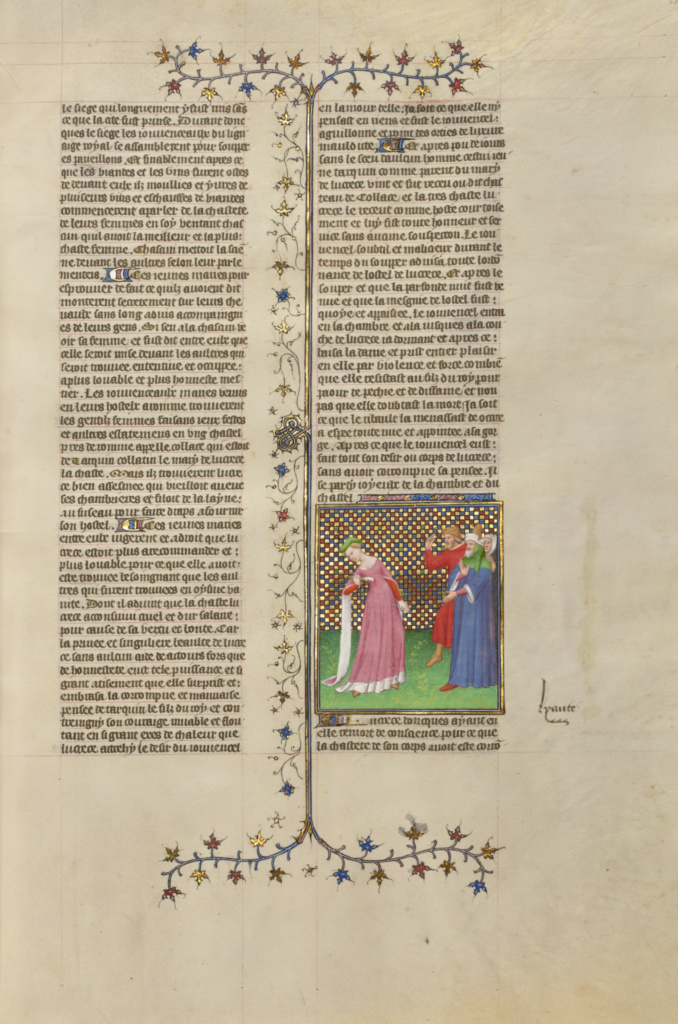 le siege qui longuement y fust mis sans
ce que la cite fust prinse. Durant donc
ques le siege les iouuenceaulx du lign
aige royal se assemblerent pour soupper
es paueillons. Et finablement apres ce
que les biandes et les vins furent ostes
de deuant eulx ilz moullies et yures de
pluseurs vins et eschauffes de biandes
commencerent a parler de la chastete
de leurs femmes en soy ventant chas
cun quil auoit la meilleur et la plus
chaste femme. Chascun mettoit la sie
ne deuant les aultres selon leur parle
menters. Ces ieunes maries pour
esprouuer de fait ce quilz auoient dit
monterent secretement sur leurs che
uaulx sans long aduis accompaingni
es de leurs gens. Si sen ala chascun ve
oir sa femme, et fust dit entre eulx que
celle seroit mise deuant les aultres qui
seroit trouuee ententiue et occupee
a plus louable et plus honneste mes
tier. Les iouuenceaulx maries venus
en leurs hostelz a romme trouuerent
les gentilz femmes faisans ieux festes
et aultres esbatemens en vng chastel
pres de romme apelle collace qui estoit
de Tarquin collatin le mary de lucrece
la chaste. Mais ilz trouuerent lucre
ce bien assesmee qui veilloit auecques
ses chamberieres et filoit de la layne
au fuseau pour faire draps a fournir
son hostel. Ces ieunes maries
entre eulx iugerent et a droit que lu
crece estoit plus a recommander et
plus louable pour ce que elle auoit
este trouuee besoingnant que les aul
tres qui furent trouuees en oysiue va
nite. Dont il aduint que la chaste lu
crece aconsuiui cruel et dur salaire
pour cause de sa vertu et bonte. Car
la priuee et singuliere beaulte de lucre
ce sans aulcun aide de atours fors que
de honnestete eust tele puissance et si
grant atisement que elle surprist et
embrasa la corrompue et mauuaise
pensee de tarquin le filz du roy et con
traingny son couraige muable et flou
tant en si grant exes de chaleur que
lucrece acrehy le desir du iouuencel
en lamour delle. Ja soit ce que elle ny
pensast en riens et fust le iouuencel
aguillonne et point des orties de luxure
mauldicte. Et apres pou de iours
sans le sceu daulcun homme cestui ieu
ne tarquin comme parent du mary
de lucrece vint et fut receu ou dit chas
teau de Collace, et la tres chaste lu
crece le receut comme hoste courtoise
ment et luy fist toute honneur et ser
uice sans aucune souspecon. Le iou
uencel soubtil et malicieux durant le
temps du soupper aduisa toute lordo
nance de lostel de lucrece. Et apres le
soupper et que la parfonde nuit fust ve
nue et que la mesgnie de lostel fust
quoye et appaisee. Le iouuencel entra
en la chambre et ala iusques a la cou
che de lucrece la dormant et apres ce
baisa la dame et prist entier plaisir
en elle par violence et force combien
que elle resistast au filz du roy pour
paour de pechie et de diffame, et non
pas que elle doubtast la mort. Ja soit
ce que le ribault la menassast de occire
a espee toute nue et appointee a sa gor
ge. Apres ce que le iouuencel eust
fait tout son desir ou corps de lucrece
sans auoir corrompue sa pensee. Il
se party ioyeux de la chambre et du
chastel.
Lucrece doncques ayant en
elle remort de conscience pour ce que
la chastete de son corps auoit este corro